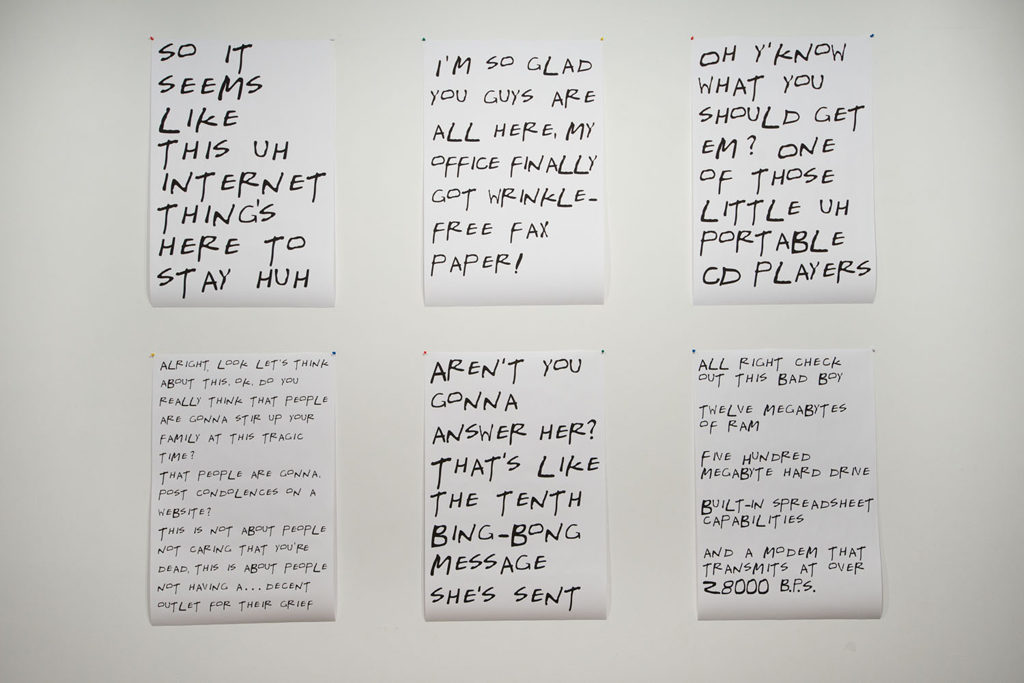 SO IT
SEEMS
LIKE
THIS UH
INTERNET
THING'S
HERE TO
STAY HUH
I'M SO GLAD
YOU GUYS ARE
ALL HERE, MY
OFFICE FINALLY
GOT WRINKLE-
FREE FAX
PAPER!
OH Y'KNOW
WHAT YOU
SHOULD GET
EM? ONE
OF THOSE
LITTLE UH
PORTABLE
CD PLAYERS
ALRIGHT, LOOK LET'S THINK
ABOUT THIS, OK. DO YOU
REALLY THINK THAT PEOPLE
ARE GONNA STIR UP YOUR
FAMILY AT THIS TRAGIC
TIME?
THAT PEOPLE ARE GONNA,
POST CONDOLENCES ON A
WEBSITE?
THIS IS NOT ABOUT PEOPLE
NOT CARING THAT YOU'RE
DEAD, THIS IS ABOUT PEOPLE
NOT HAVING A... DECENT
OUTLET FOR THEIR GRIEF
AREN'T YOU
GONNA
ANSWER HER?
THAT'S LIKE
THE TENTH
BING-BONG
MESSAGE
SHE'S SENT
ALL RIGHT CHECK
OUT THIS BAD BOY
TWELVE MEGABYTES
OF RAM
FIVE HUNDRED
MEGABYTE HARD DRIVE
BUILT-IN SPREADSHEET
CAPABILITIES
AND A MODEM THAT
TRANSMITS AT OVER
28000 B.P.S.